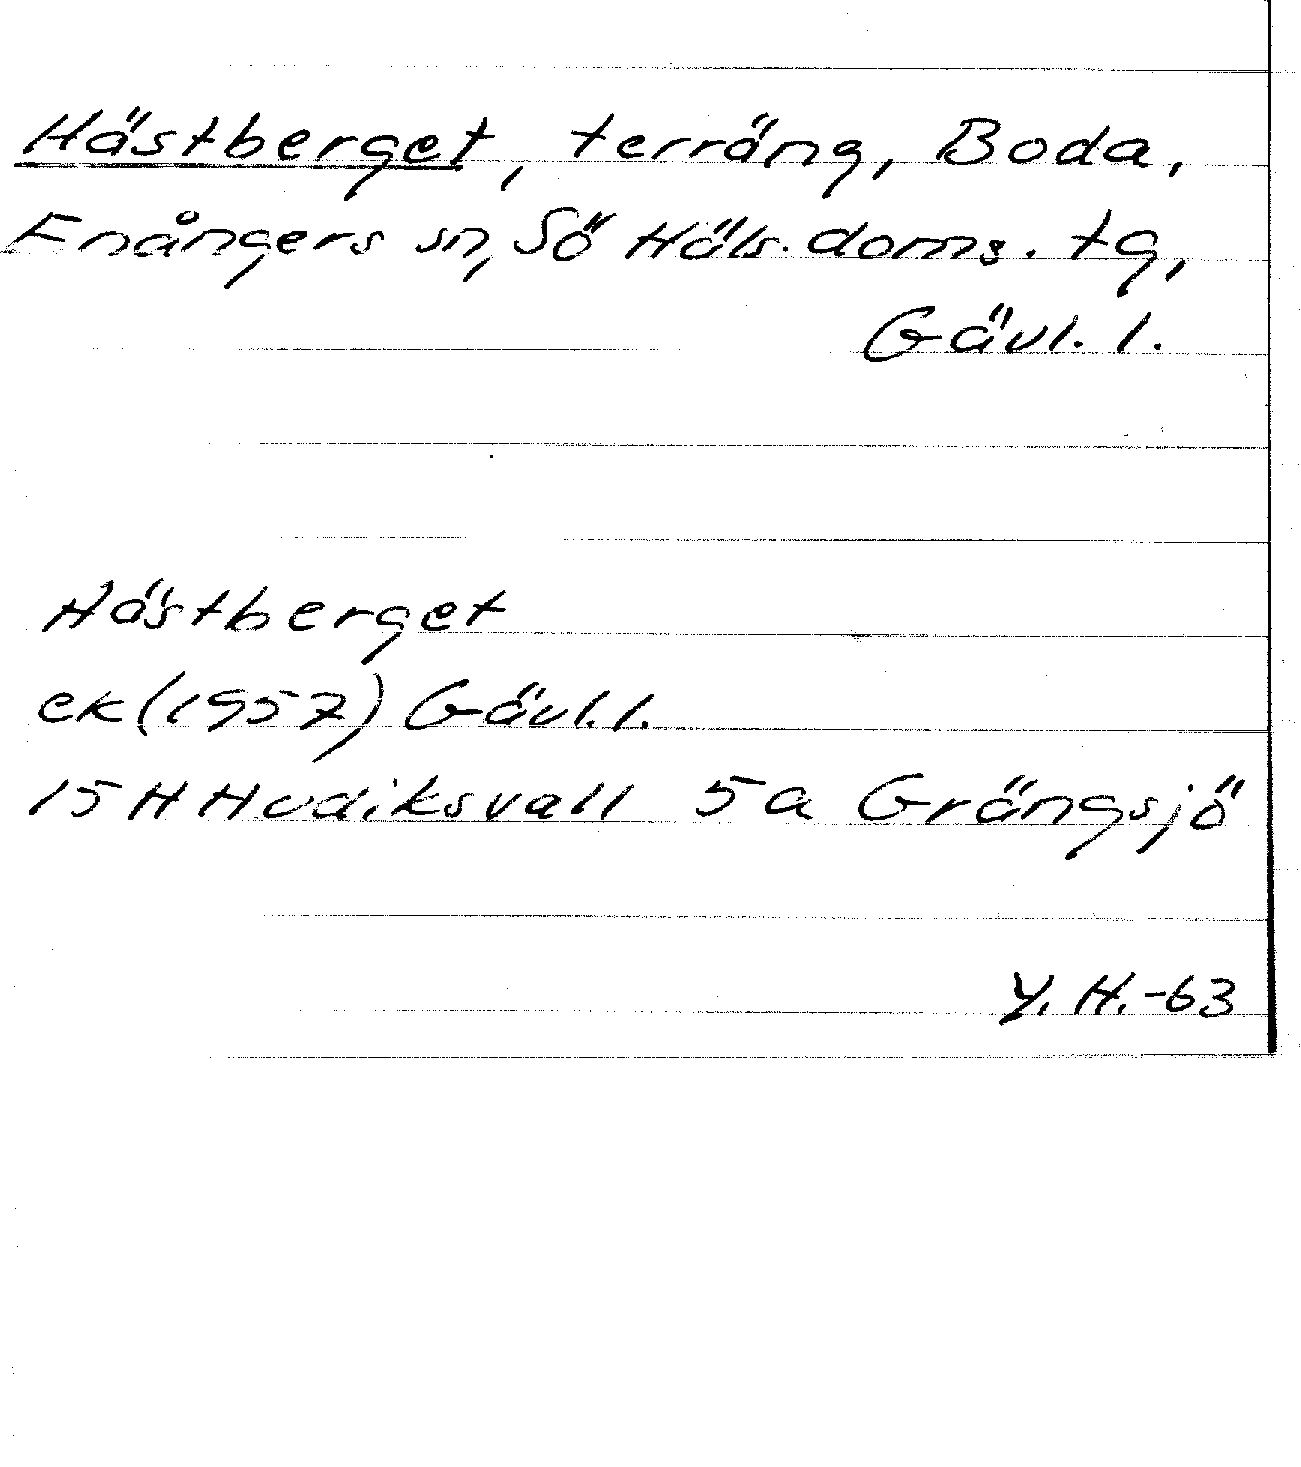 Hästberget, terräng, Boda,
Enångers sn, Sö Häls. doms. tg,
Gävl. l.
Hästberget
ek (1957) Gävl. l.
15 H Hudiksvall 5a Grängsjö
Y. H. -63